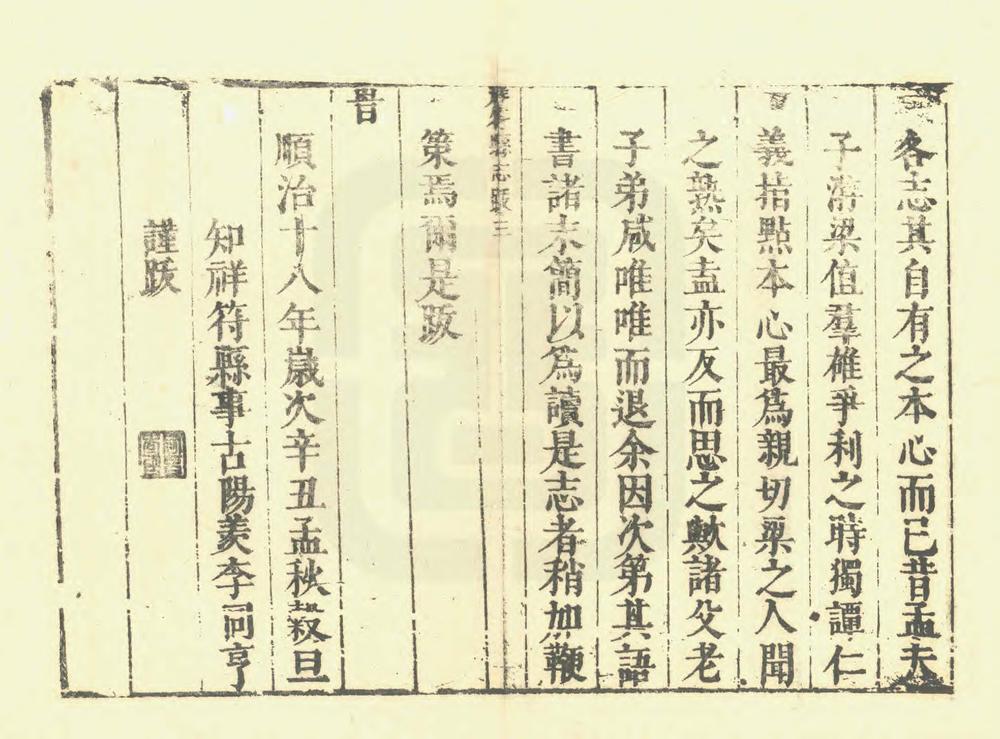 各志其自有之本心而已昔孟夫
子游梁值羣雄爭利之時獨譚仁
義拮點本心最爲親切梁之人聞
之熟矣盍亦反而思之歟諸父老
子弟咸唯唯而退余因次第其語
書諸末簡以爲讀是志者稍加鞭
祥符縣志跋 三
策焉爾是跋
旹
順治十八年歲次辛丑孟秋穀旦
知祥符縣事古陽羨李同亨
謹跋